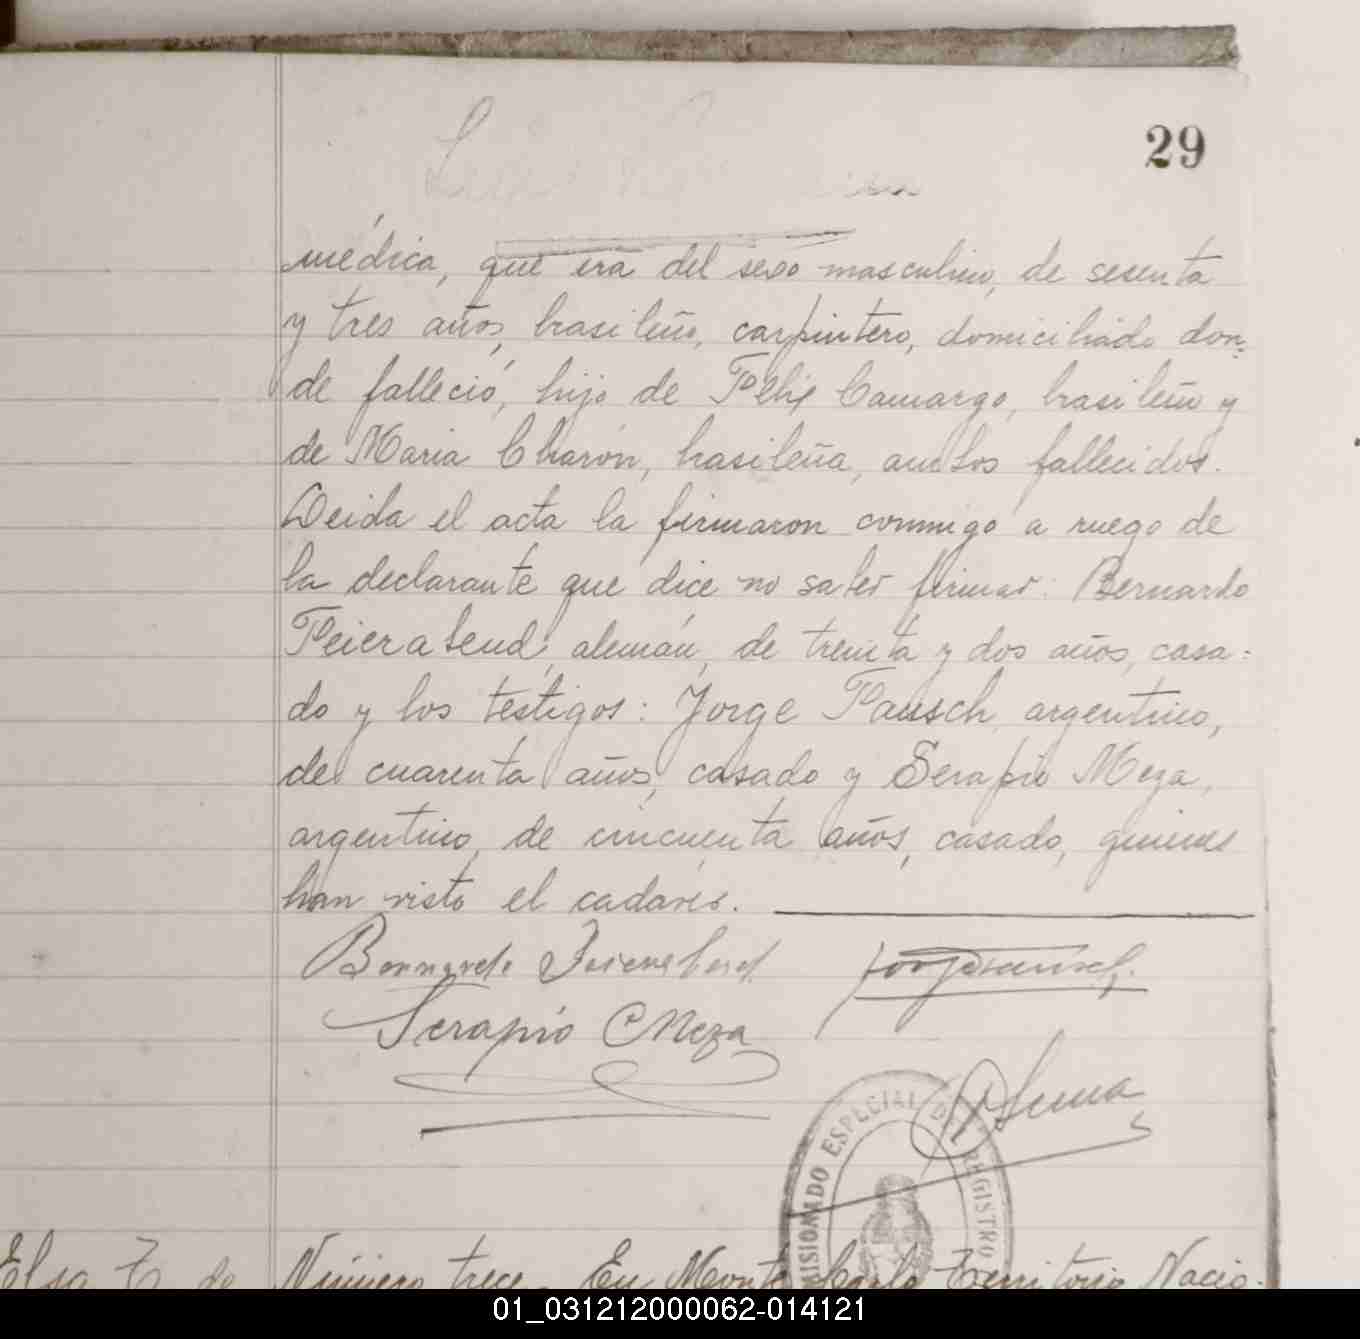 29
médica, que era del sexo masculino, de sesenta
y tres años, brasileño, carpintero, domiciliado don=
de falleció, hijo de Félix Camargo, brasileño y
de Maria Charón, brasileña, ambos fallecidos.
Leida el acta la firmaron conmigo a ruego de
la declarante que dice no saber firmar: Bernardo
Feierabend, alemán, de treinta y dos años, casa=
do y los testigos: Jorge Pausch, argentino,
de cuarenta años, casado y Serapio Meza,
argentino, de cincuenta años, casado, quienes
han visto el cadáver.
Serapio Meza
MISIONADO ESPECIAL DEL REGISTRO
Elsa T. de Número trece. En Monte Carlo Territorio Nacio-
01_031212000062-014121